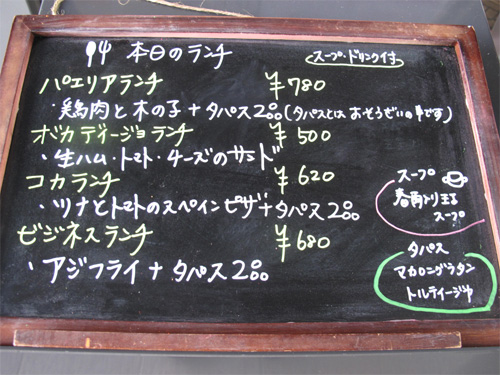 本日のランチ
スープ・ドリンク付
パエリアランチ ¥780
・鶏肉と木の子+タパス2コ(タパスとは おそうざいの事です)
ボカディージョランチ ¥500
・生ハム・トマト・チーズのサンド
コカランチ ¥620
・ツナとトマトのスペインピザ+タパス2コ
ビジネスランチ ¥680
・アジフライ+タパス2コ
スープ
春雨入り玉子
スープ
タパス
マカロニグラタン
トルティージャ